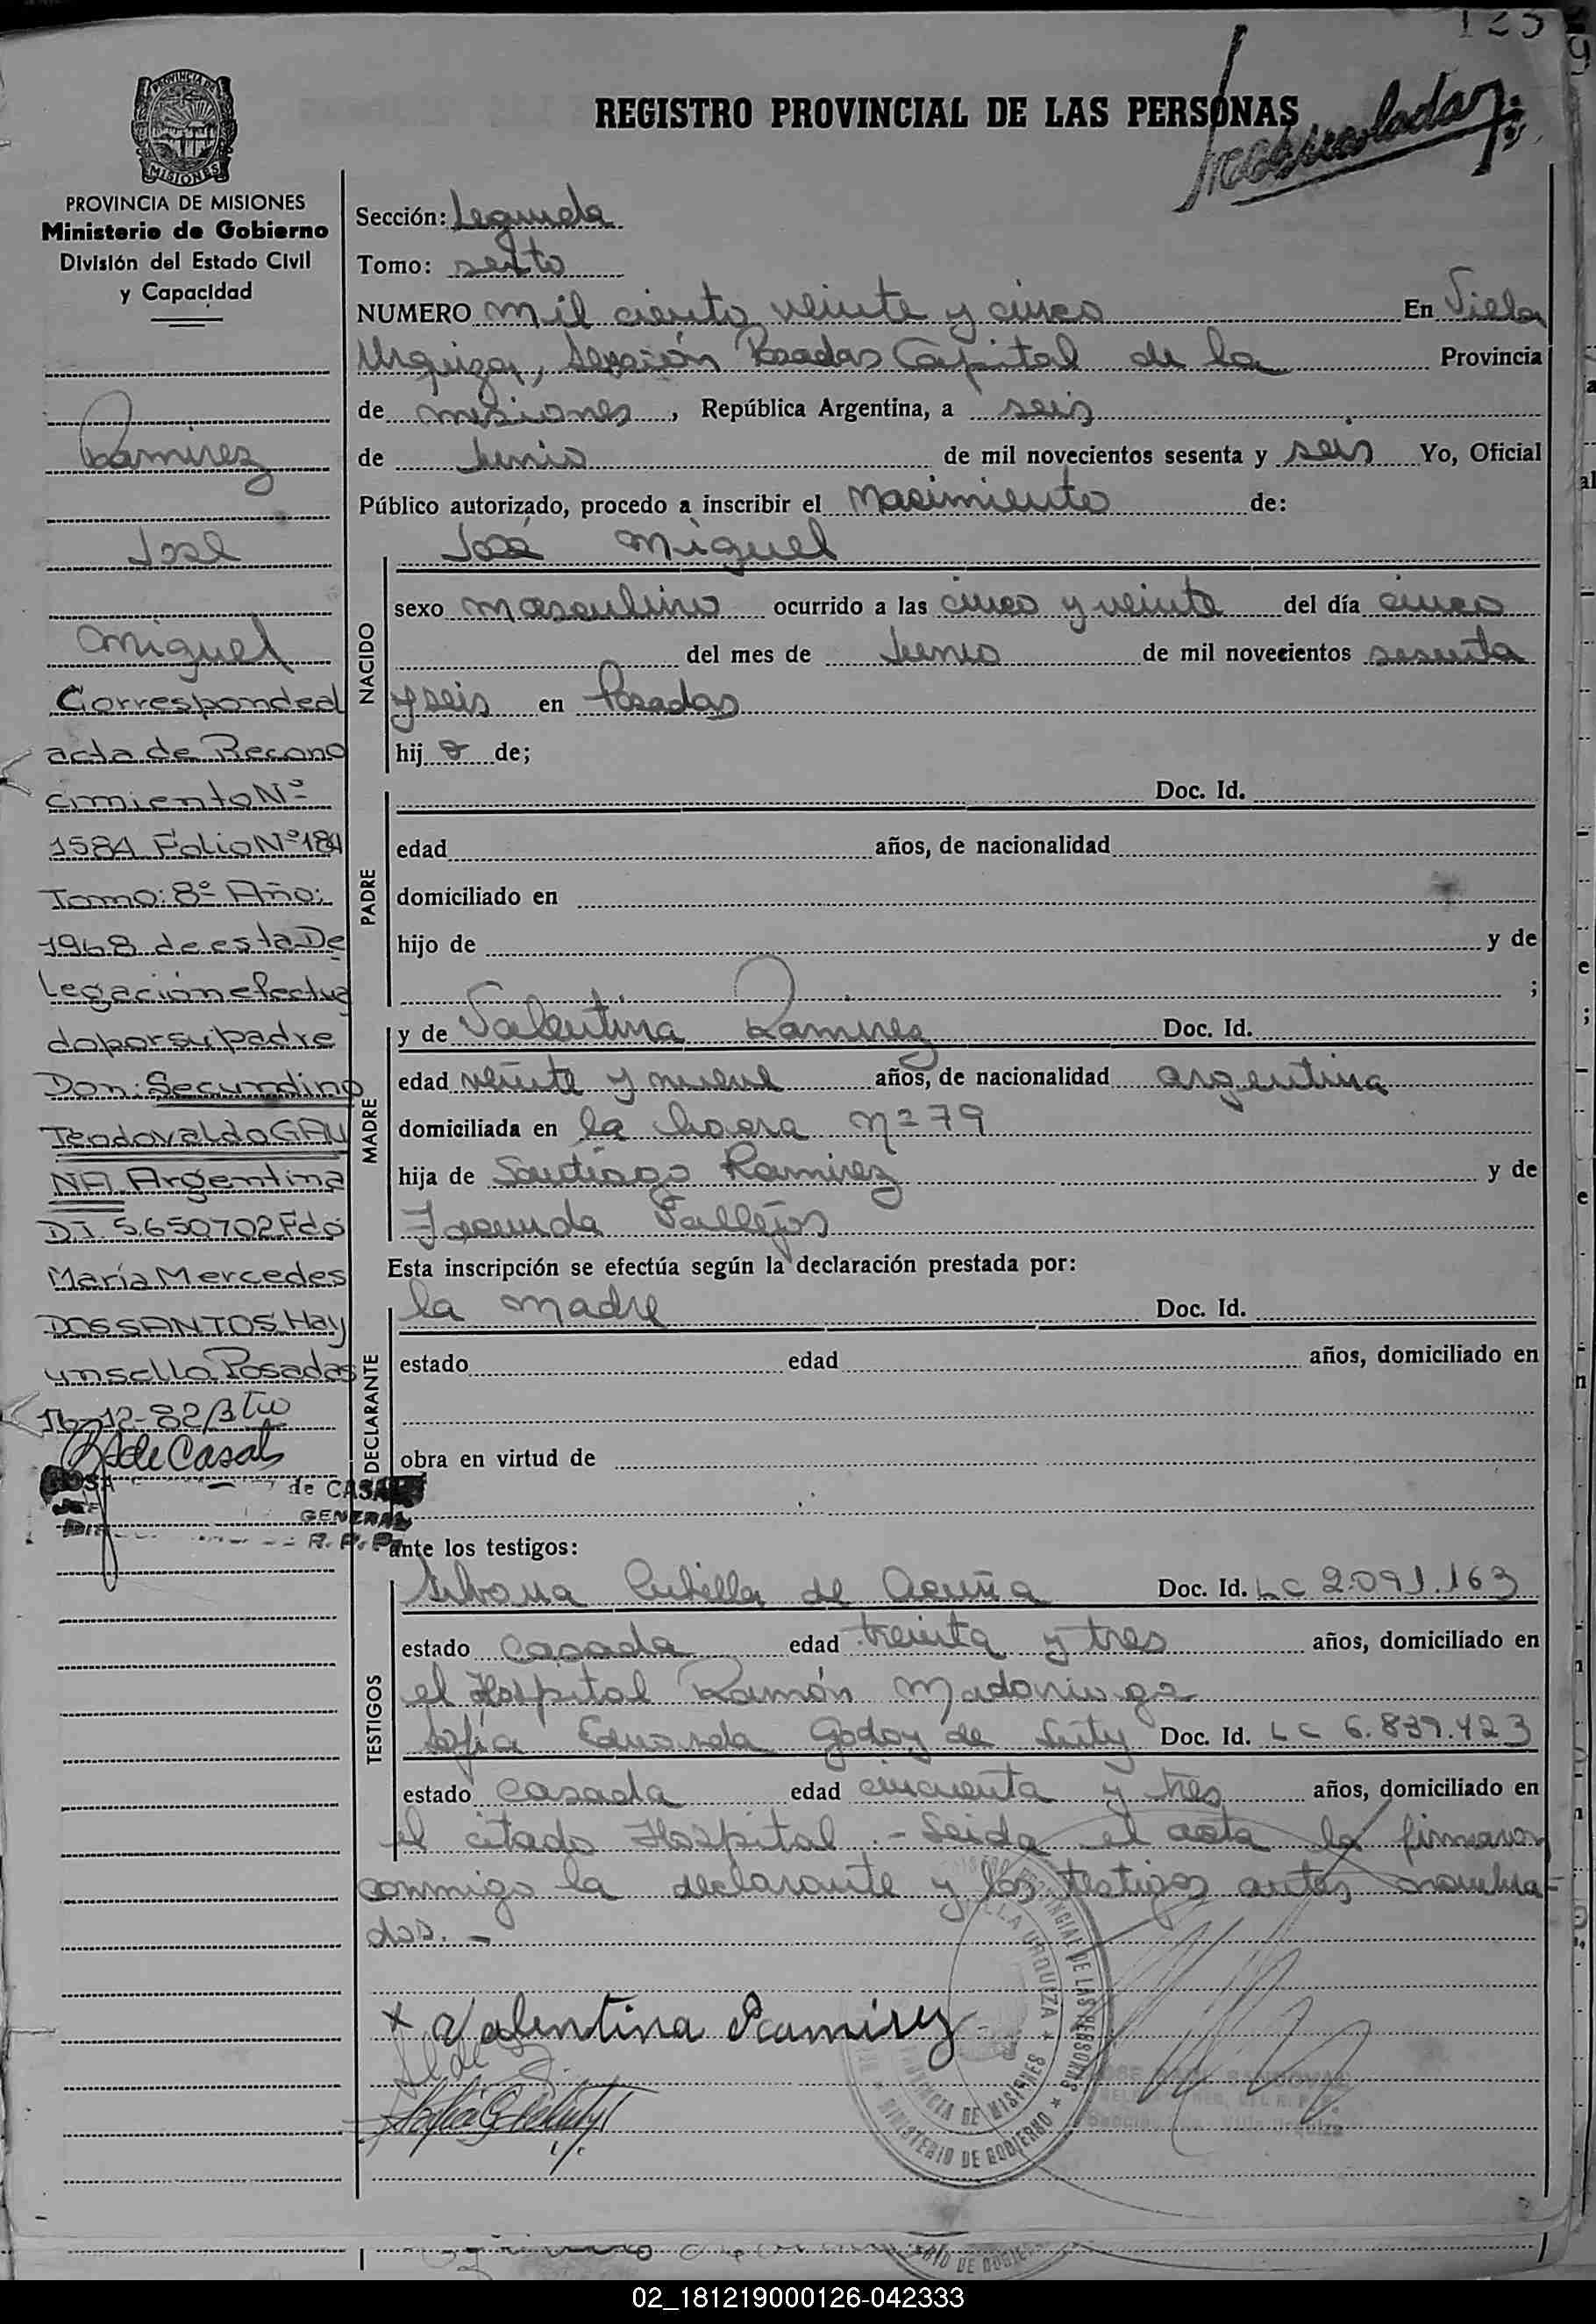 125
REGISTRO PROVINCIAL DE LAS PERSONAS
PROVINCIA DE
MISIONES
PROVINCIA DE MISIONES
Ministerio de Gobierno
División del Estado Civil
y Capacidad
Ramirez
José
Miguel
Corresponde al
acta de Recono
cimiento Nº
1584 Folio Nº 184
Tomo: 8º Año:
1968 de esta De
legación efectua
do por su padre
Don: Secundino
Teodovaldo GAU
NA Argentina
D.I. 5.650702 Fdo
María Mercedes
DOS SANTOS Hay
un sello Posadas
16-12-82
R de Casals
ROSA de CASALS
GENERAL
R. P. P.
Sección: Segunda
Tomo: sexto
NUMERO mil ciento veinte y cinco En Villa
Urquiza, Sección Posadas Capital de la Provincia
de misiones, República Argentina, a seis
de Junio de mil novecientos sesenta y seis Yo, Oficial
Público autorizado, procedo a inscribir el Nacimiento de:
José Miguel
NACIDO
sexo masculino ocurrido a las cinco y veinte del día cinco
del mes de Junio de mil novecientos sesenta
y seis en Posadas
hij o de;
PADRE
Doc. Id.
edad años, de nacionalidad
domiciliado en
hijo de y de
;
MADRE
y de Valentina Ramirez Doc. Id.
edad veinte y nueve años, de nacionalidad argentina
domiciliada en la chacra nº 79
hija de Santiago Ramirez y de
Facunda Vallejos
Esta inscripción se efectúa según la declaración prestada por:
DECLARANTE
la madre Doc. Id.
estado edad años, domiciliado en
obra en virtud de
ante los testigos:
TESTIGOS
Silvana Cubilla de Acuña Doc. Id. LC 2.091.163
estado casada edad treinta y tres años, domiciliado en
el Hospital Ramón Madariaga
Sofía Eduarda Godoy de Doc. Id. LC 6.839.423
estado casada edad cincuenta y tres años, domiciliado en
el citado Hospital.- Leida el acta la firmaron
conmigo la declarante y los testigos antes nombra-
dos.-
x Valentina Ramirez
REGISTRO PROVINCIAL DE LAS PERSONAS
VILLA URQUIZA
PROVINCIA DE MISIONES
MINISTERIO DE GOBIERNO
SANDOVAL
Villa Urquiza
02_181219000126-042333